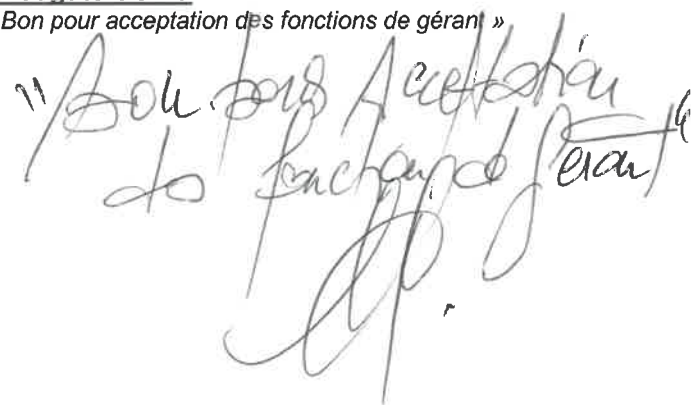 Bon pour acceptation des fonctions de gérant »
"Bon pour Acceptation
des fonctions de gérant"